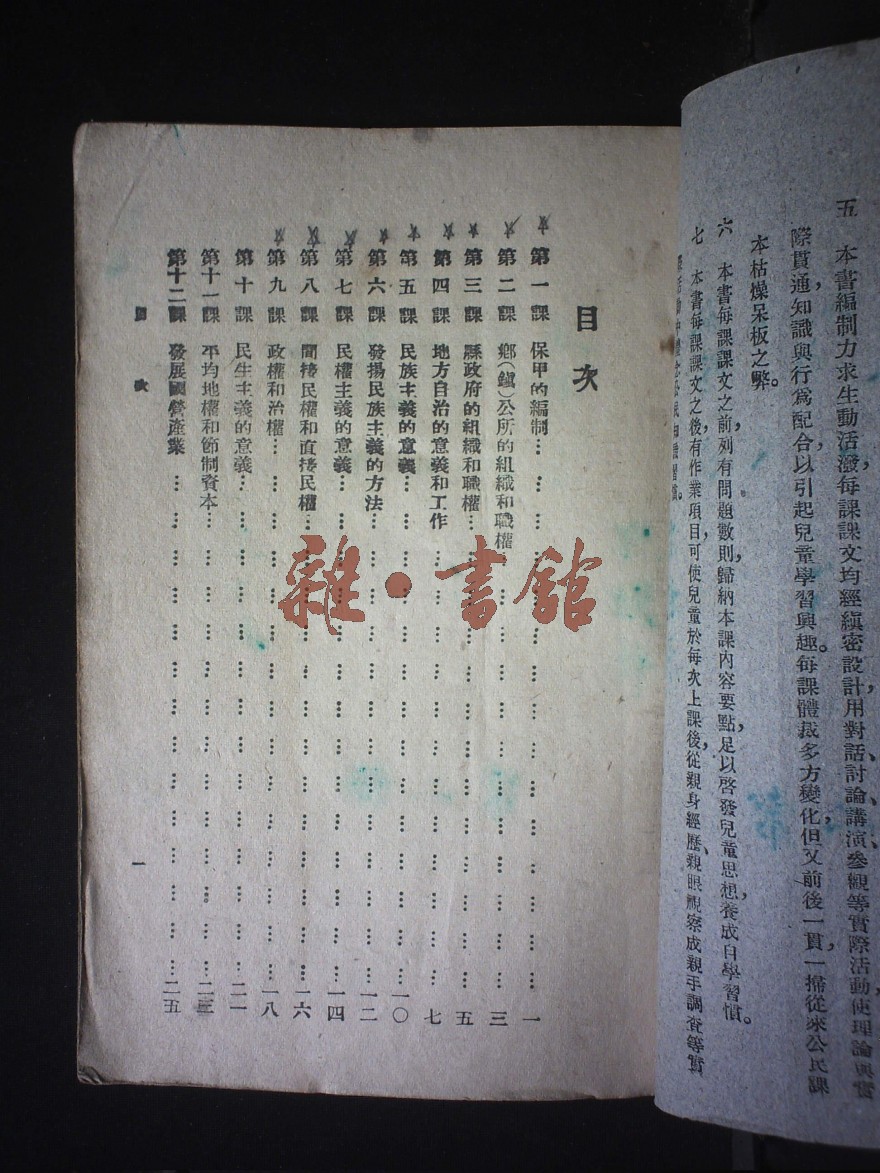 五　本書編制力求生動活潑，每課課文均經縝密設計，用對話、討論、講演、參觀等實際活動，使理論與實
際貫通，知識與行爲配合，以引起兒童學習興趣。每課體裁多方變化，但又前後一貫，一掃從來公民課
本枯燥呆板之弊。
六　本書每課課文之前，列有問題數則，歸納本課內容要點，足以啓發兒童思想，養成自學習慣。
七　本書每課課文之後，有作業項目，可使兒童於每次上課後，從親身經歷、親眼觀察或親手調查等實
目次
第一課　保甲的編制……一
第二課　鄉(鎮)公所的組織和職權……三
第三課　縣政府的組織和職權……五
第四課　地方自治的意義和工作……七
第五課　民族主義的意義……一〇
第六課　發揚民族主義的方法……一二
第七課　民權主義的意義……一四
第八課　間接民權和直接民權……一六
第九課　政權和治權……一八
第十課　民生主義的意義……二一
第十一課　平均地權和節制資本……二三
第十二課　發展國營產業……二五
目次
一
雜·書館